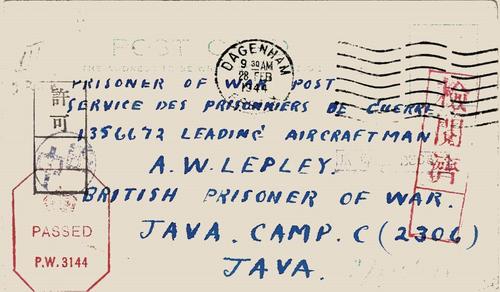 POST CARD
DAGENHAM
9 30 AM
28 FEB
1944
PRISONER OF WAR POST
SERVICE DES PRISONNIERS DE GUERRE
1356672 LEADING AIRCRAFTMAN
A.W. LEPLEY.
BRITISH PRISONER OF WAR.
JAVA. CAMP. C (2306)
JAVA.
許可
檢閲濟
PASSED
P.W. 3144